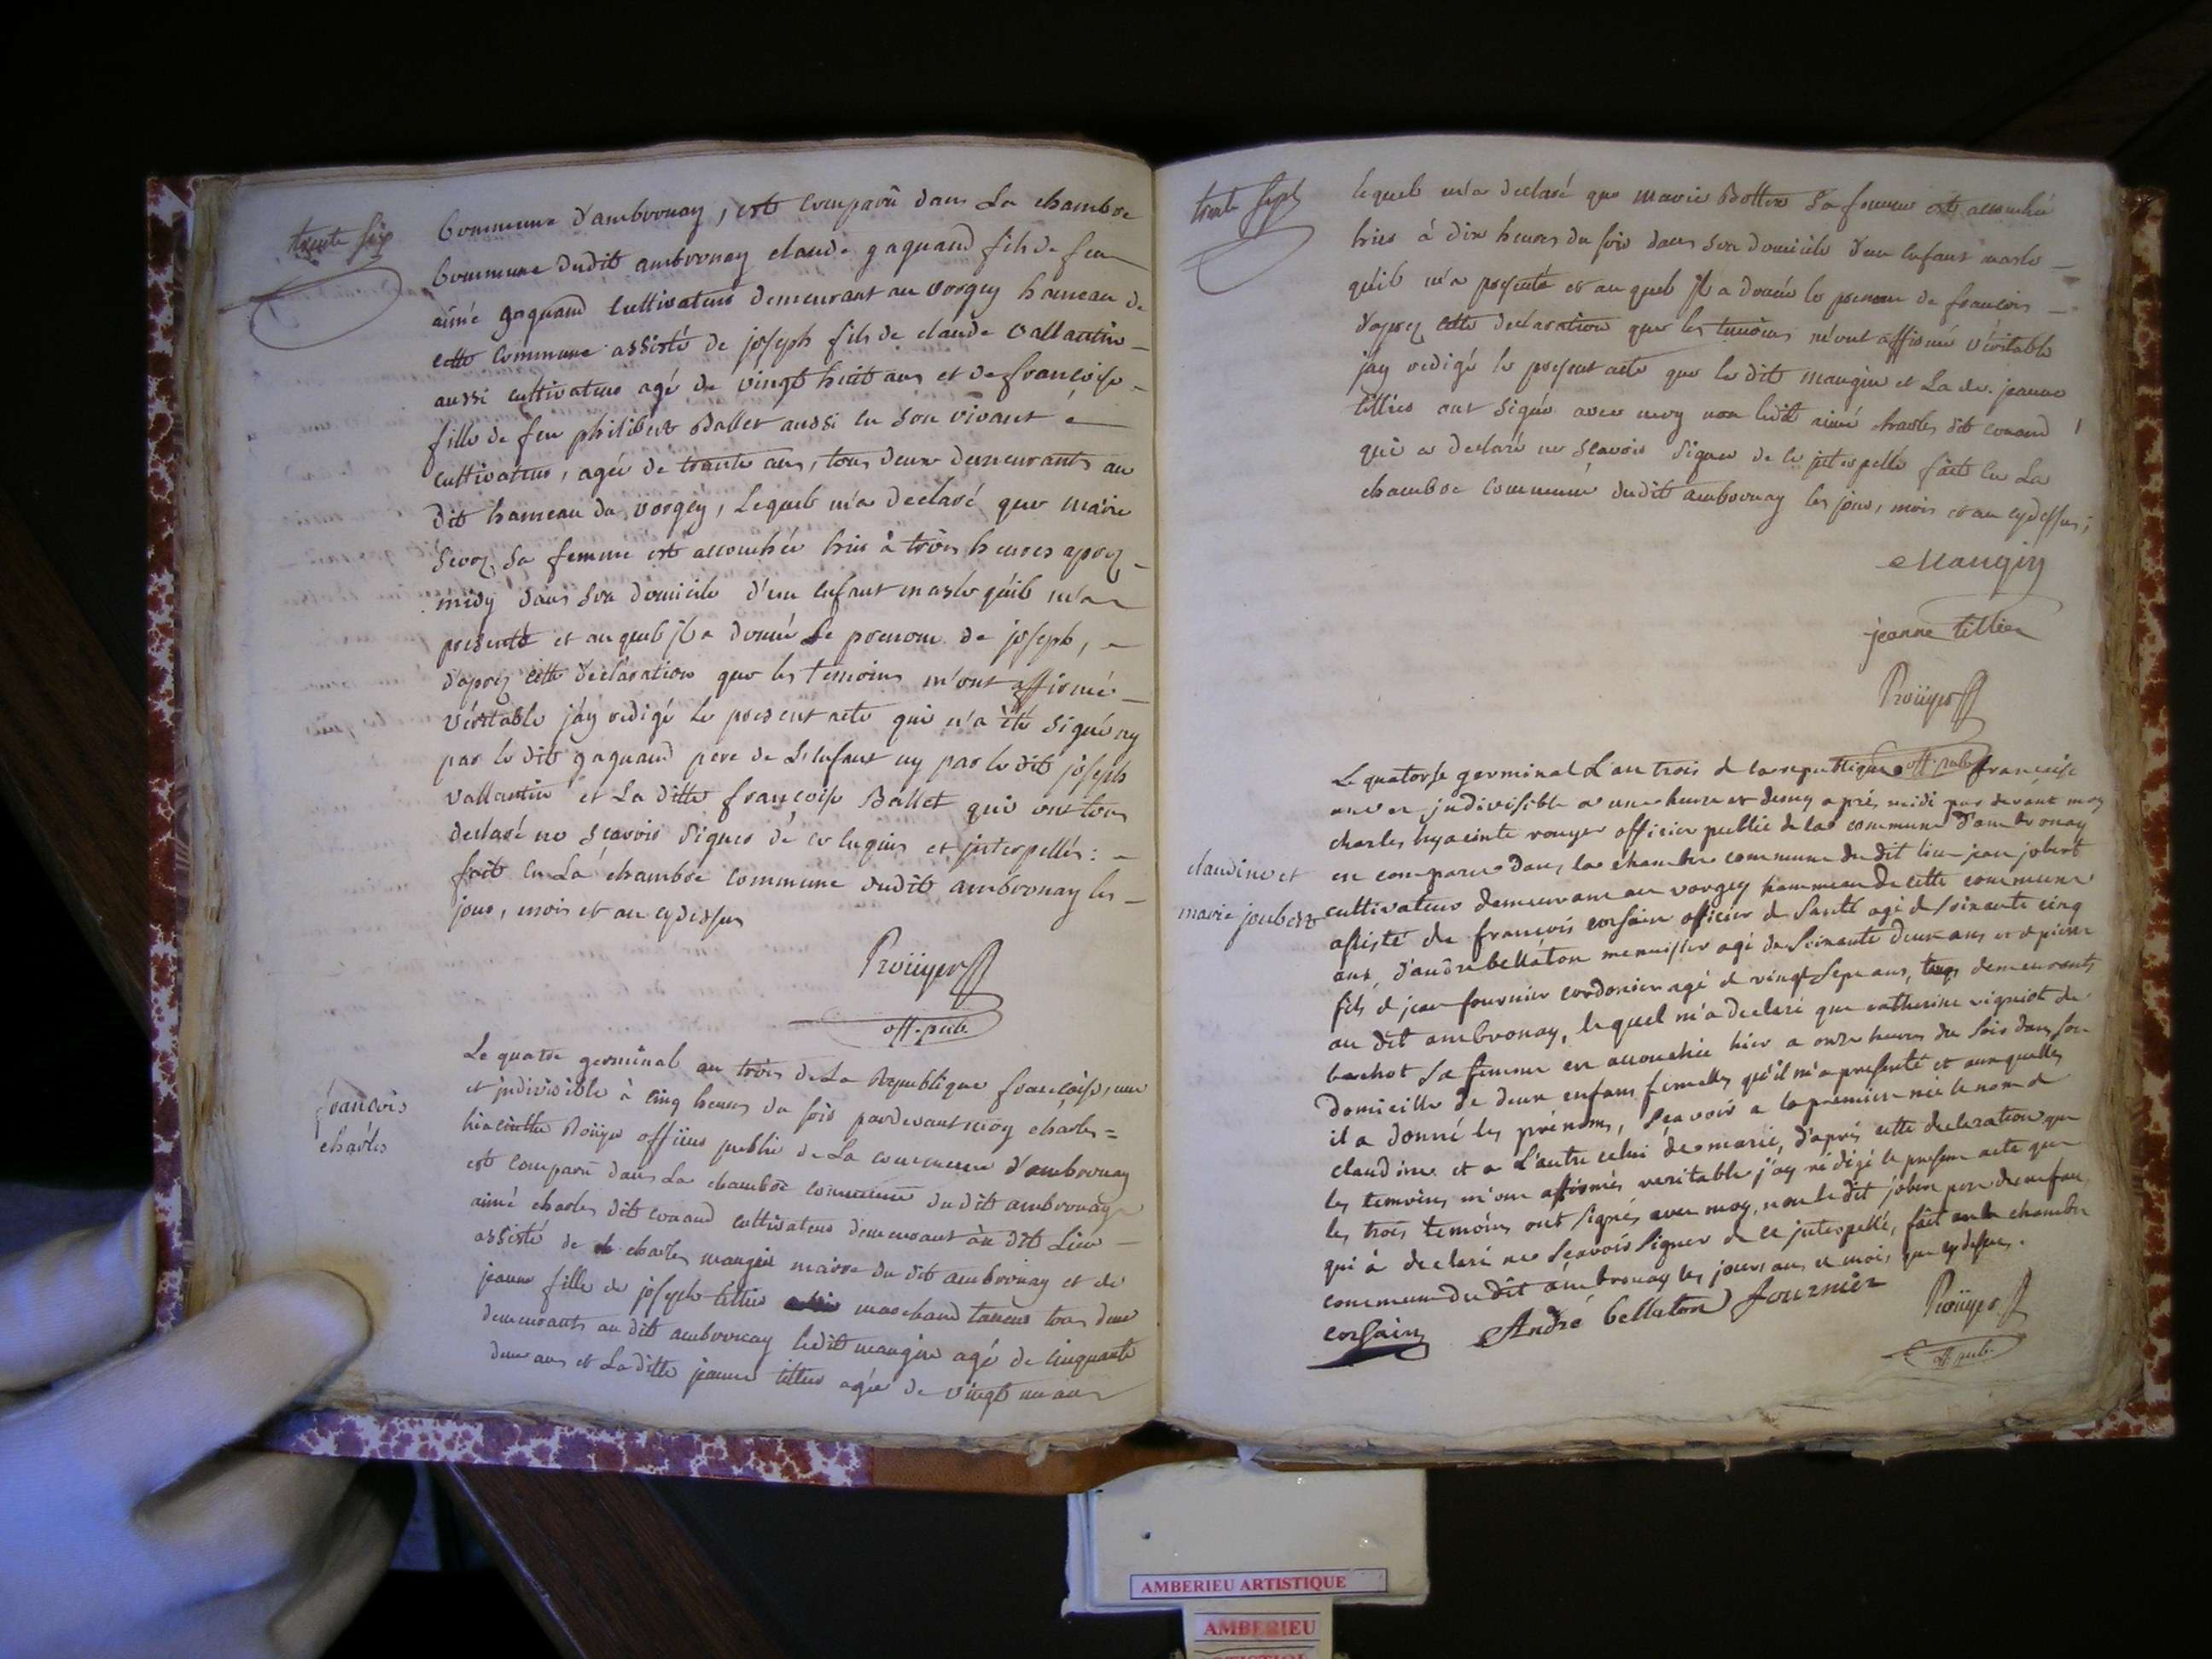 trente six
Commune d'ambronay, est comparû dans La chambre
Commune dudit ambronay claude gaguand fils de feu
aimé gaguand cultivateur demeurant au vorgey hameau de
cette commune assisté de joseph fils de claude vallantin
aussi cultivateur agé de vingt huit ans et de francoise
fille de feu philibert Ballet aussi en son vivant
cultivateur, agée de trante ans, tous deux demeurants au
dit hameau du vorgey, Lequel m'a declaré que marie
sa femme est accouchée hier à trois heures aprez
midy dans son domicile d'un enfant masle qu'il m'a
presenté et auquel jl a donné Le prenom de joseph,
d'aprez cette déclaration que les temoins m'ont affirmé
véritable j'ay redigé Le present acte qui n'a été signé ny
par le dit gaguand pere de L'enfant ny par le dit joseph
vallantin et La ditte françoise Ballet qui ont tous
declaré ne scavoir signer de ce enquis et jnterpellés :
fait en La chambre commune dudit ambronay les
jour, mois et an cydessus
Roüyer
off. pub.
francois
charles
Le quatre germinal an trois de La Republique francaise, une
et jndivisible à cinq heures du soir pardevant moy charles =
hiacinthe Roüyer officier public de La commune d'ambronay
est comparû dans La chambre commune du dit ambronay
aimé charles dit conand cultivateur demeurant au dit Lieu
assisté de charles mangin maire du dit ambronay et de
jeanne fille de joseph tillier marchand taneur tous deux
demeurants au dit ambronay ledit mangin agé de cinquante
deux ans et La ditte jeanne tillier agée de vingt un ans
trente sept
lequel m'a declaré que marie Bottex sa femme est accouchée
hier à dix heures du soir dans son domicile d'un enfant masle
qu'il m'a presenté et auquel jl a donné le prenom de francois
d'aprez cette declaration que les temoins m'ont affirmé véritable
jay redigé le present acte que le dit mangin et La de. jeanne
tillier ont signés avec moy non ledit aimé charles dit conand
qui a declaré ne scavoir signer de ce jnterpellé fait en La
chambre commune dudit ambronay les jour, mois et an cydessus;
Mangin
jeanne tillier
Roüyer
off. pub.
claudine et
marie joubert
Le quatorse germinal L'an trois de la republique francaise
une et jndivisible a une heure et demy après midi par devant moy
charles hyacinte rouyer officier public de la commune d'ambronay
est comparu dans la chambre commune du dit lieu jean jobert
cultivateur demeurant au vorgey hammeau de cette commune
assisté de francois corsain officier de santé agé de soixante cinq
ans, d'andré bellaton menuisier agé de soixante deux ans et de pierre
fils de jean fournier cordonier agé de vingt sept ans, tous demeurants
au dit ambronay, lequel m'a declaré que catherine vigniot de
bachot sa femme est accouchée hier a onze heures du soir dans son
domicille de deux enfans femelles qu'il m'a presenté et auxquelles
il a donné les prénoms, sçavoir a la premiere née le nom de
claudine et a L'autre celui de marie, d'après cette declaration que
les temoins m'ont affirmés veritable j'ay rédigé le present acte que
les trois temoins ont signés avec moy, non le dit jobert pere des enfans
qui à declaré ne sçavoir signer de ce jnterpellé, fait en la chambre
commune du dit ambronay les jours ans et mois que cy dessus.
corsain André bellaton fournier Roüyer
off. pub.
AMBERIEU ARTISTIQUE
AMBERIEU
ARTISTIQUE